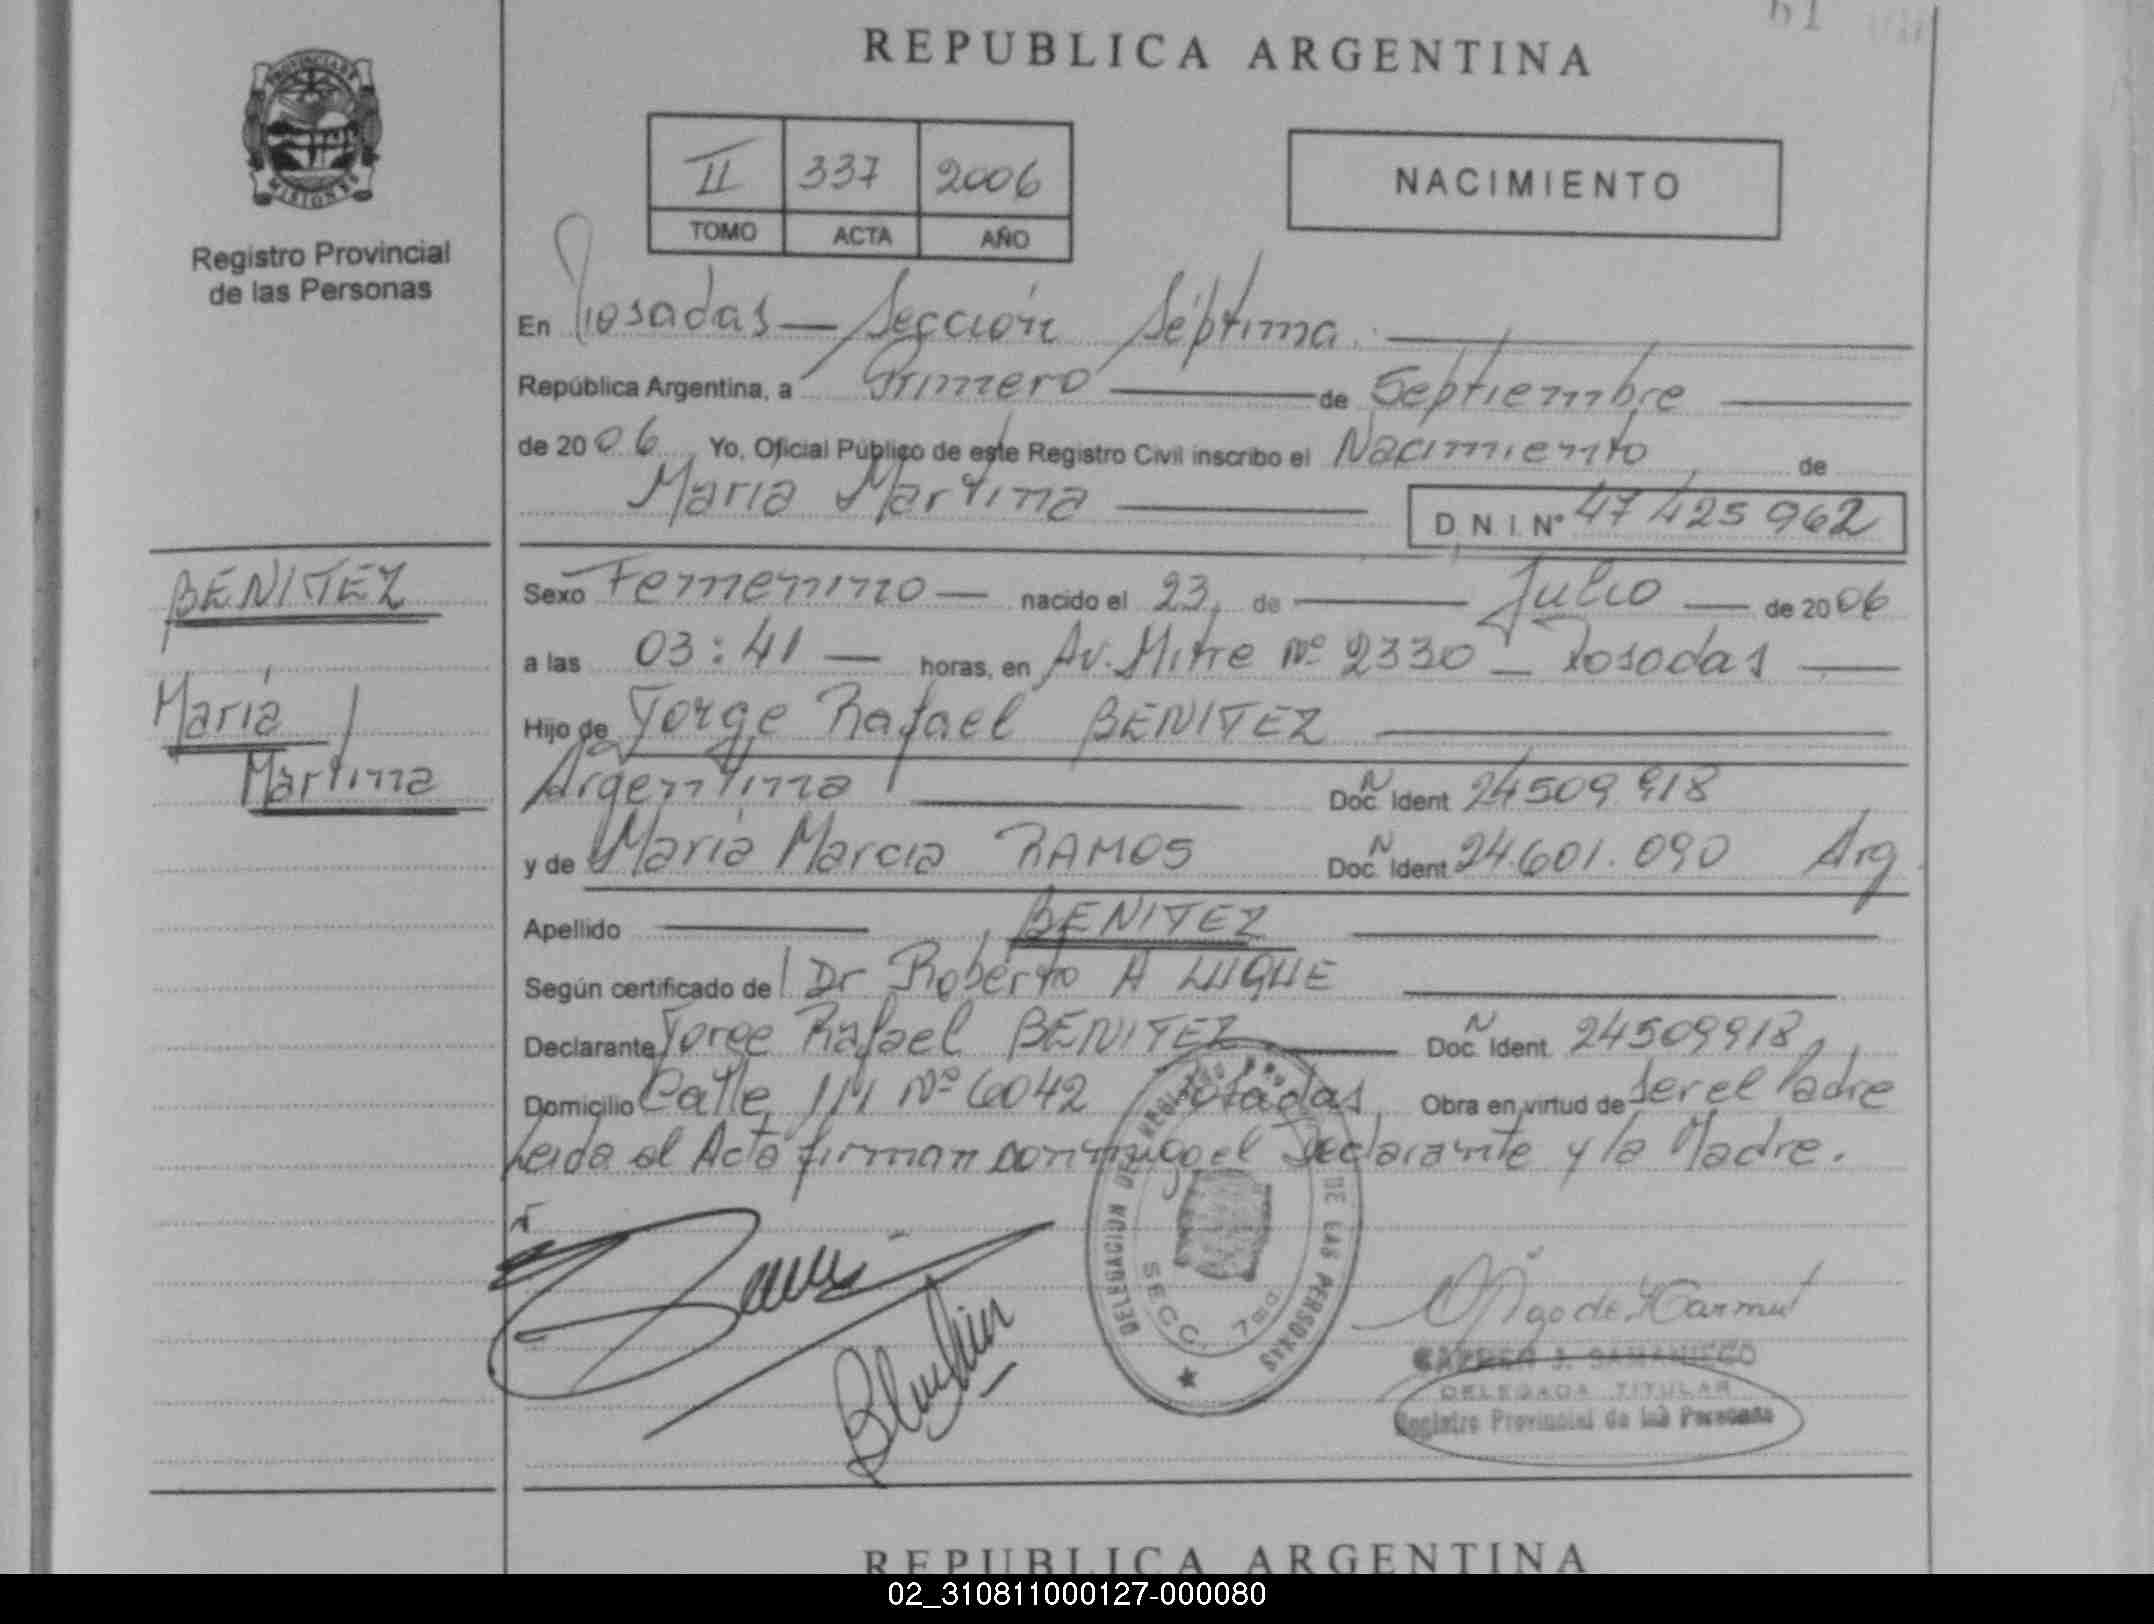 REPUBLICA ARGENTINA
PROVINCIA DE
MISIONES
Registro Provincial
de las Personas
II 337 2006
TOMO ACTA AÑO
NACIMIENTO
En Posadas — Sección Séptima.
República Argentina, a Primero de Septiembre
de 2006 Yo, Oficial Público de este Registro Civil inscribo el Nacimiento de
Maria Martina D.N.I. Nº 47 425 962
BENITEZ
Maria
Martina
Sexo Femenino — nacido el 23, de Julio — de 2006
a las 03:41 — horas, en Av. Mitre Nº 2330 — Posadas
Hijo de Jorge Rafael BENITEZ
Argentina Doc. Ident N 24509.918
y de Maria Marcia RAMOS Doc. Ident N 24.601.090 Arg.
Apellido BENITEZ
Según certificado de Dr Roberto A LUQUE
Declarante Jorge Rafael BENITEZ Doc. Ident. N 24509918
Domicilio Calle 111 Nº 6042 Posadas, Obra en virtud de Ser el Padre
Leida el Acta firman conmigo el Declarante y la Madre.
DELEGACION DEL REGISTRO DE LAS PERSONAS
SECC. 7ma.
CARMEN J. SAMANIEGO
DELEGADA TITULAR
Registro Provincial de las Personas
REPUBLICA ARGENTINA
02_310811000127-000080